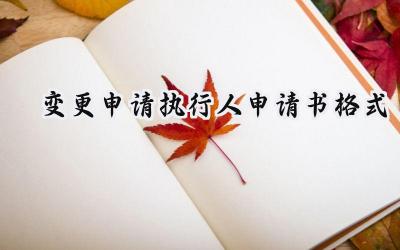 变更申请执行人申请书格式